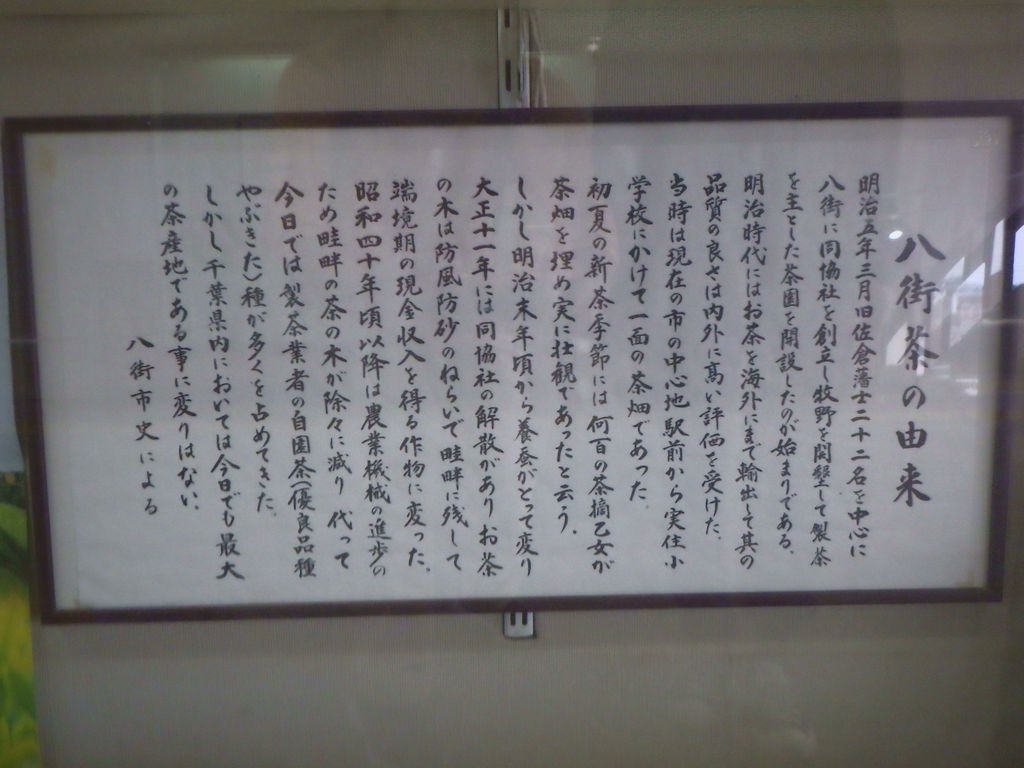 八街茶の由来
明治五年三月旧佐倉藩士二十二名を中心に
八街に同協社を創立し牧野を開墾して製茶
を主とした茶園を開設したのが始まりである。
明治時代にはお茶を海外にまで輸出して其の
品質の良さは内外に高い評価を受けた、
当時は現在の市の中心地駅前から実住小
学校にかけて一面の茶畑であった。
初夏の新茶季節には何百の茶摘乙女が
茶畑を埋め実に壮観であったと云う。
しかし明治末年頃から養蚕がとって変り
大正十一年には同協社の解散がありお茶
の木は防風防砂のねらいで畦畔に残して
端境期の現金収入を得る作物に変った。
昭和四十年頃以降は農業機械の進歩の
ため畦畔の茶の木が除々に減り 代って
今日では製茶業者の自園茶(優良品種
やぶきた)種が多くを占めてきた。
しかし千葉県内においては今日でも最大
の茶産地である事に変りはない。
八街市史による